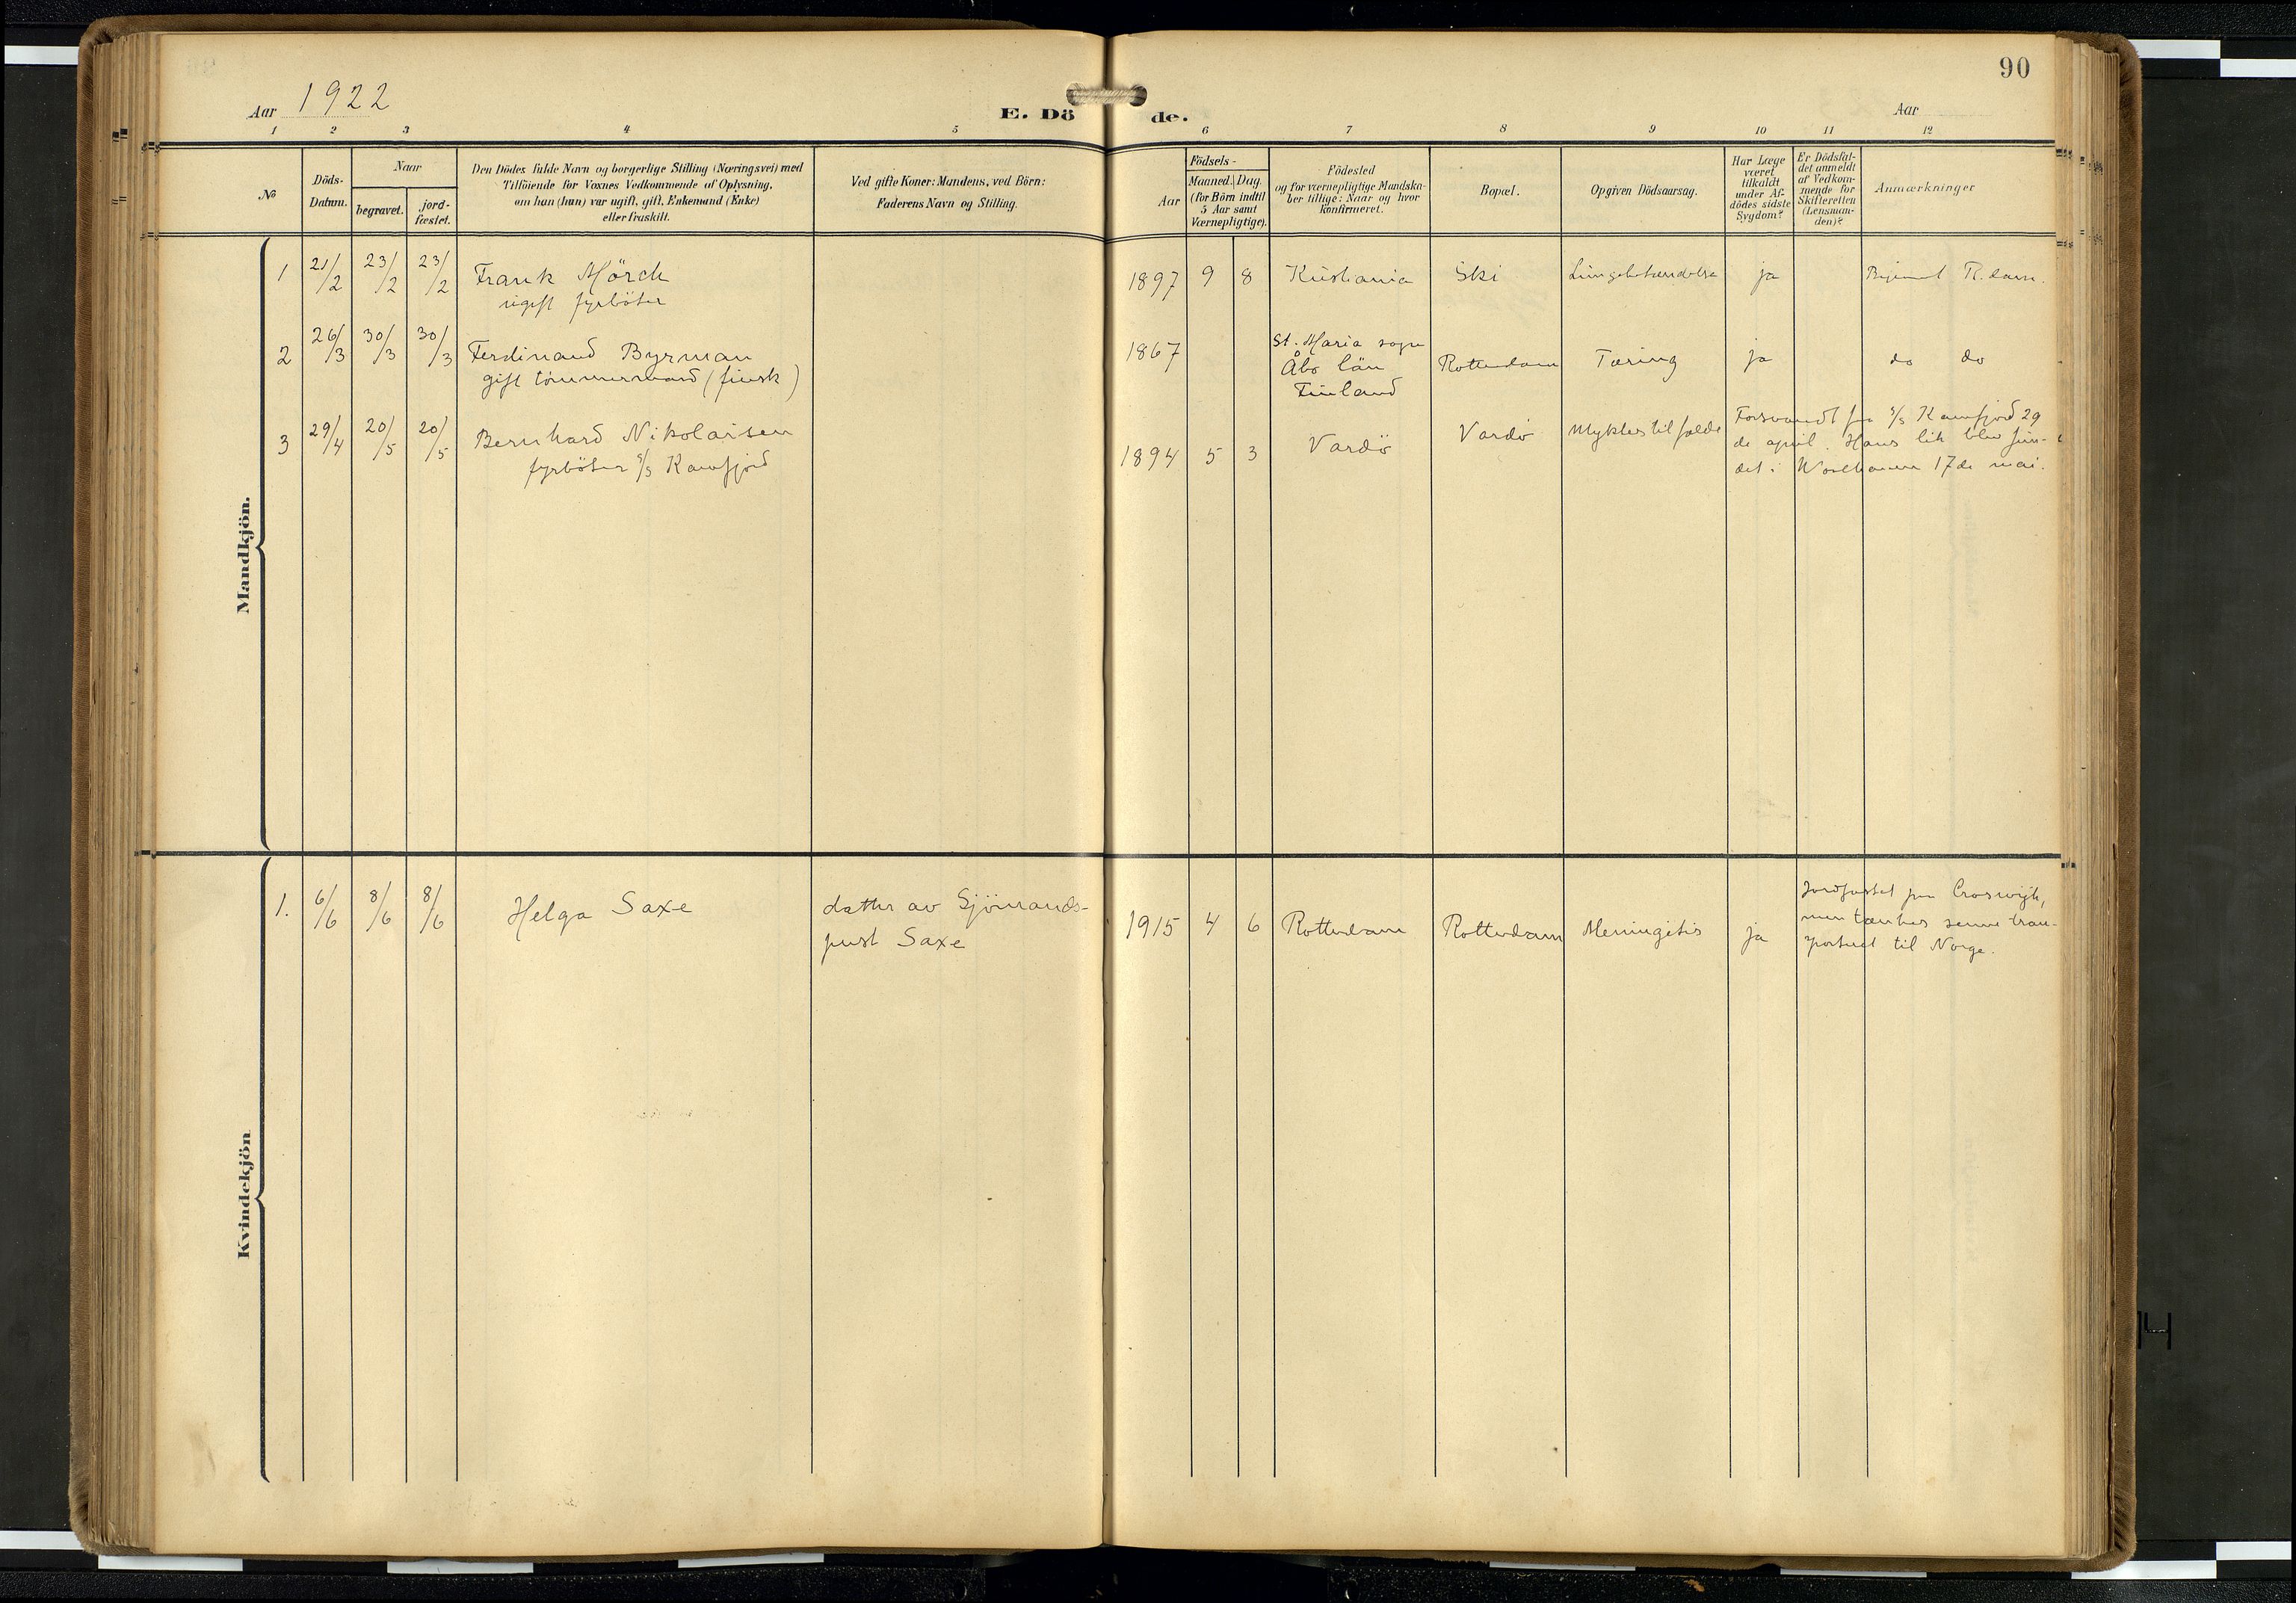 90
Aar 1922
E. Dö de.
Aar
1 2 3 4 5 6 7 8 9 10 11 12
No
Döds-
Datum.
Naar
begravet.
jord-
fæstet.
Den Dödes fulde Navn og borgerlige Stilling (Næringsvei) med
Tilföiende for Voxnes Vedkommende af Oplysning,
om han (hun) var ugift, gift, Enkemand (Enke)
eller fraskilt.
Ved gifte Koner: Mandens, ved Börn:
Faderens Navn og Stilling.
Födsels-
Aar
Maaned. Dag.
(for Börn indtil
5 Aar samt
Værnepligtige).
Födested
og for værnepligtige Mandska-
ber tillige: Naar og hvor
konfirmeret.
Bopæl.
Opgiven Dödsaarsag.
Har Læge
været
tilkaldt
under Af-
dödes sidste
Sygdom?
Er Dödsfal-
det anmeldt
af Vedkom-
mende for
Skifteretten
(Lensman-
den)?
Anmærkninger
Mandkjön.
1 21/2 23/2 23/2 Frank Mörch 1897 9 8 Kristiania Ski Lungebetændelse ja
ugift fyrböter
2 26/3 30/3 30/3 Ferdinand Byrman 1867 St. Maria sogn Rotterdam Tæring ja do do
gift tömmermand (finsk) Åbo län
Finland
3 29/4 20/5 20/5 Bernhard Nikolaisen 1894 5 3 Vardö Vardö Ulykkestilfælde Forsvandt fra s/s Kamfjord 29
fyrböter s/s Kamfjord de april. Hans lik blev fun-
det i 17de mai.
Kvindekjön
1. 6/6 8/6 8/6 Helga Saxe datter av Sjömands- 1915 4 6 Rotterdam Rotterdam Meningitis ja Jordfæstet paa Croswijk,
prest Saxe men tænkes senere tran-
sportert til Norge.